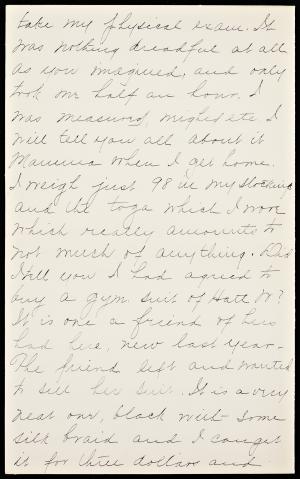 take my physical exam. It
was nothing dreadful at all
as you imagined, and only
took me half an hour. I
was measured, weighed etc I
will tell you all about it
Mamma when I get home.
I weigh just 98 in my stockings
and the toga which I wore
which really amounts to
not much of anything. Did
I tell you I had agreed to
buy a gym. suit of
It is one a friend of hers
had here, new last year-
The friend left and wanted
to sell her suit. It is a very
neat one, black with some
silk braid and I can get
it for three dollars and